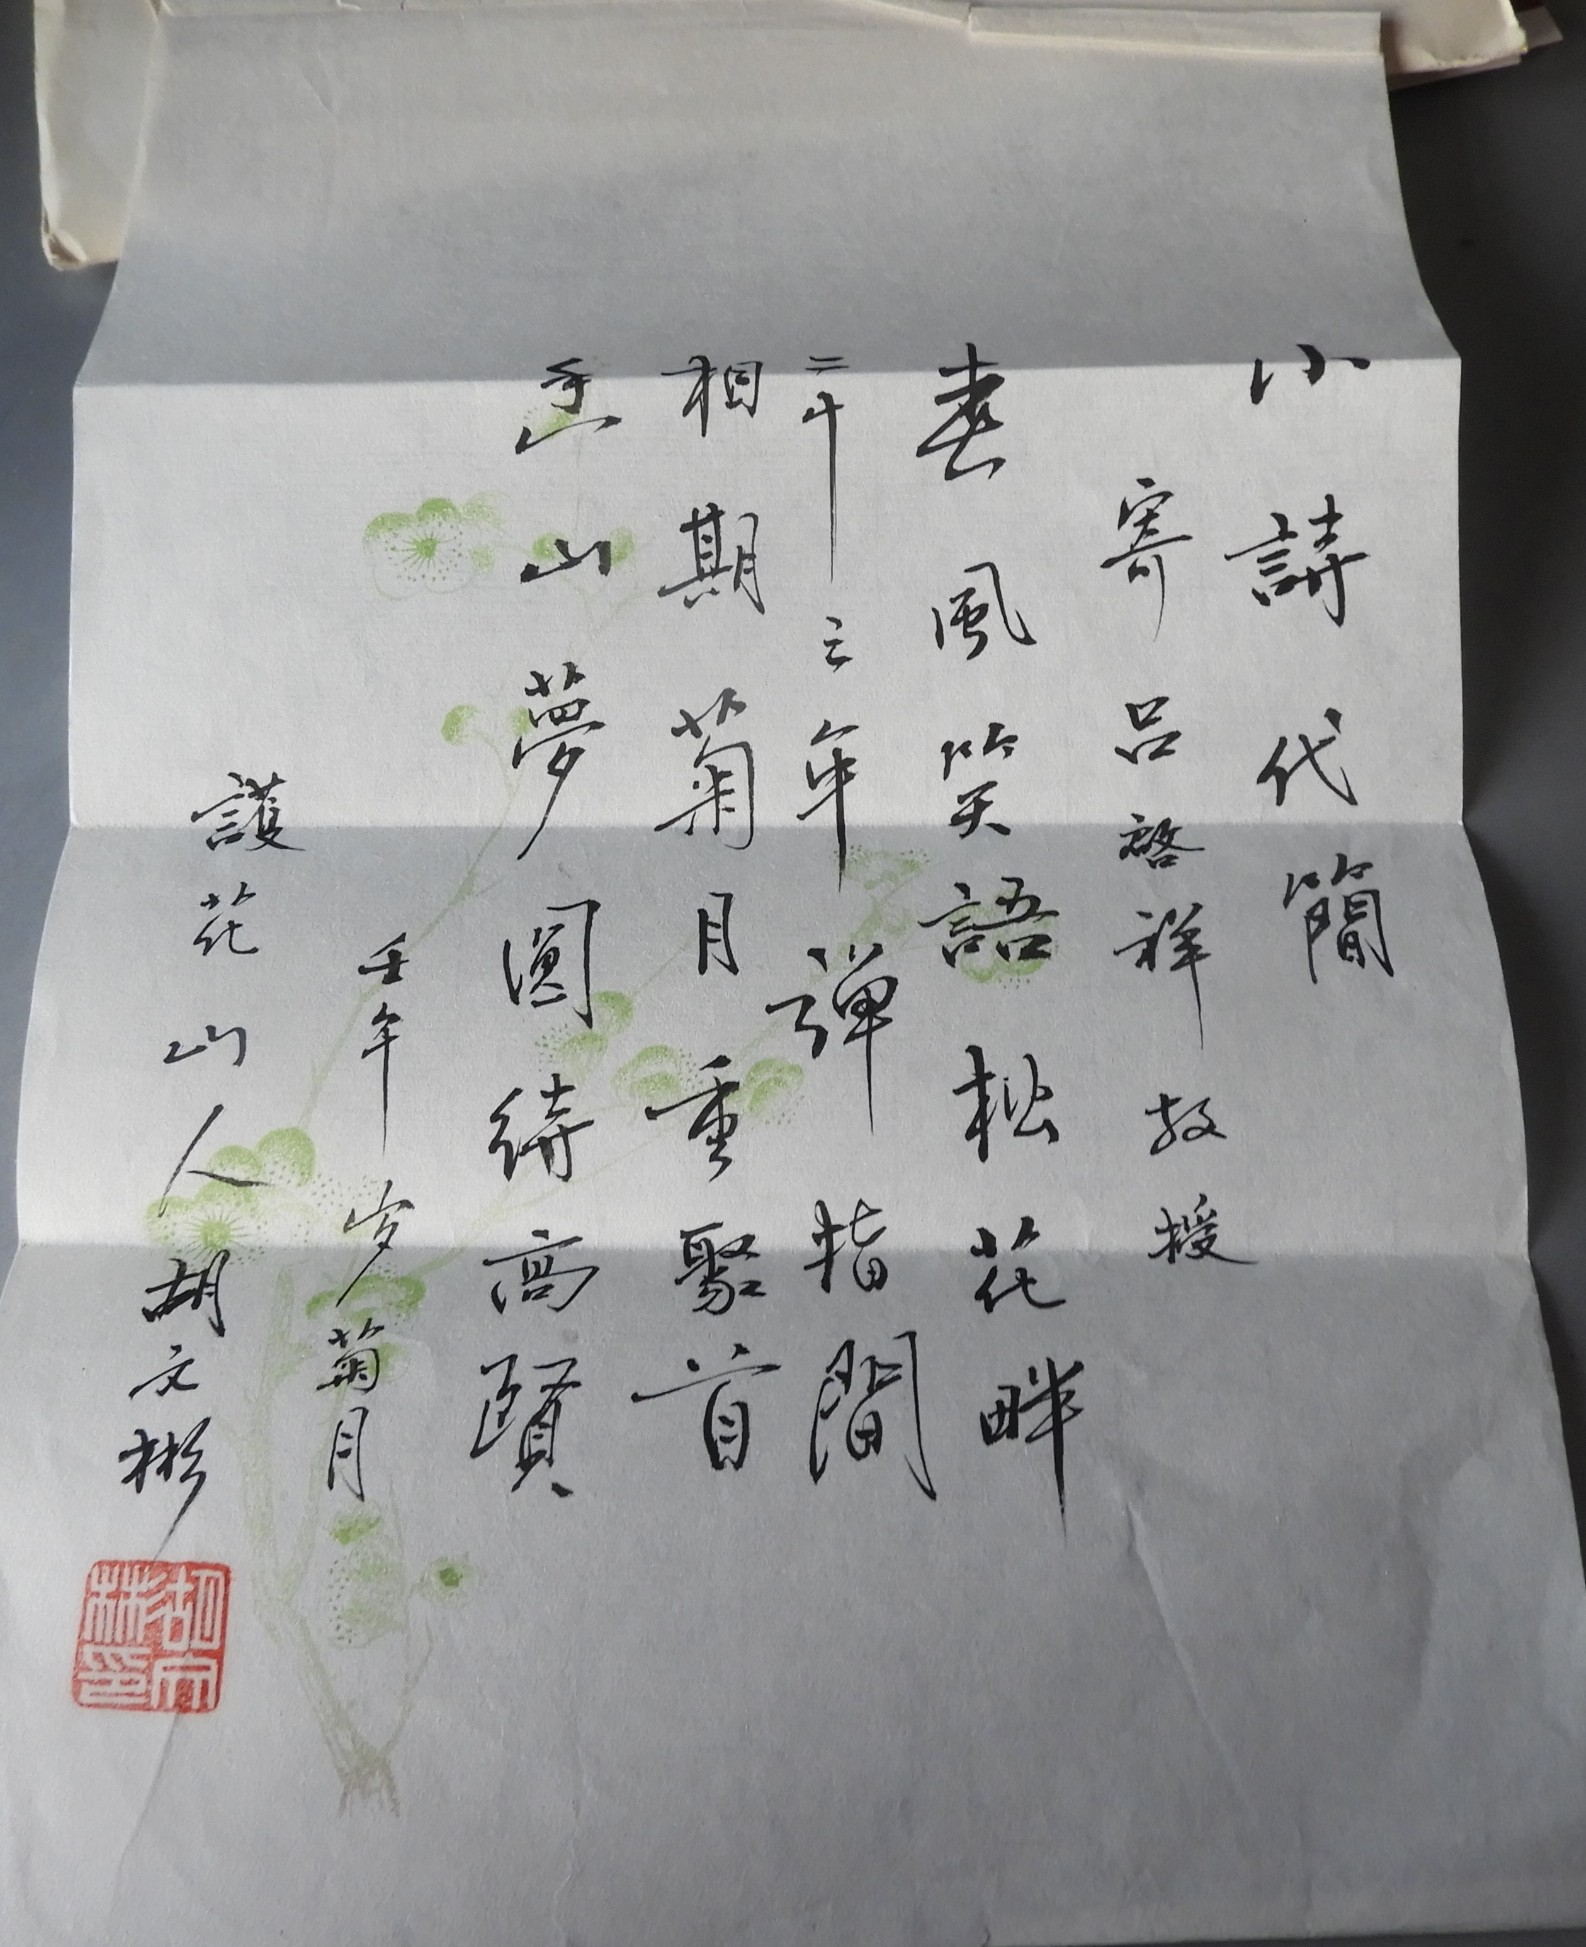 小詩代簡
寄呂啓祥教授
春風笑語松花畔
二十三年彈指間
相期菊月重聚首
香山夢圓待高賢
壬午岁菊月
護花山人胡文彬
胡文彬印